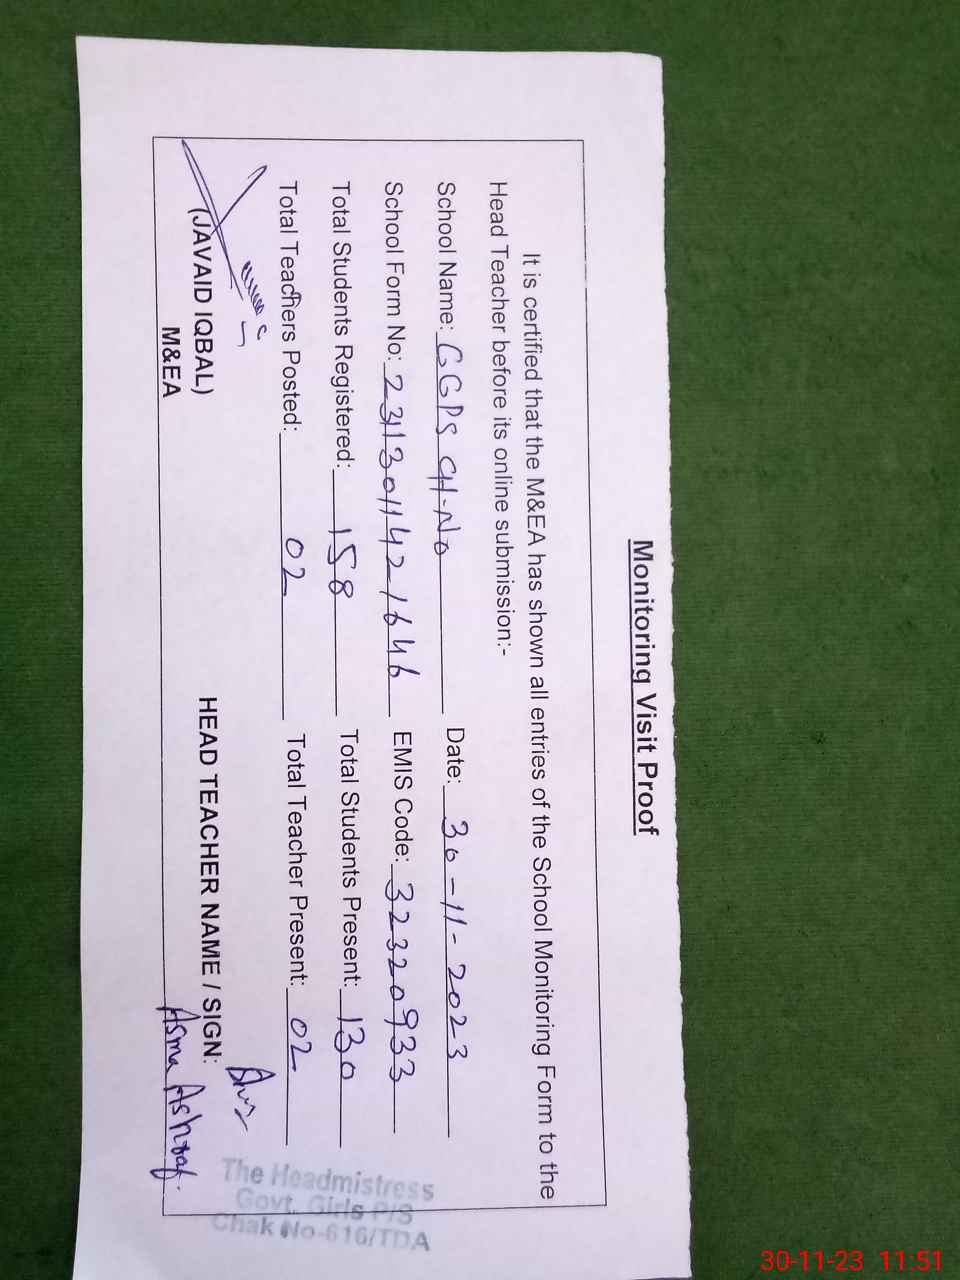 Monitoring Visit Proof
It is certified that the M&EA has shown all entries of the School Monitoring Form to the
Head Teacher before its online submission:-
School Name: GGPS 91-No Date: 30-11-2023
School Form No: 2313011421646 EMIS Code: 32320933
Total Students Registered: 158 Total Students Present: 130
Total Teachers Posted: 02 Total Teacher Present: 02
(JAVAID IQBAL) HEAD TEACHER NAME / SIGN:
M&EA Asma Ashraf.
The Headmistress
Govt. Girls P/S
Chak No-616/TDA
30-11-23 11:51